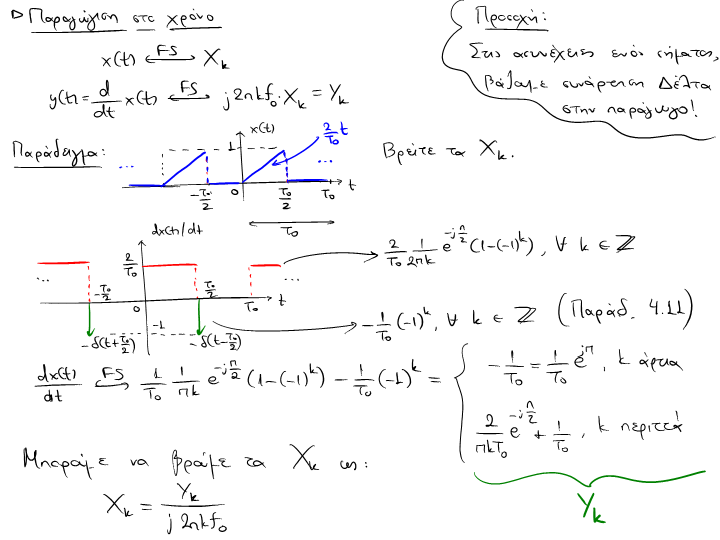 ▷ Παραγώγιση στο χρόνο
x(t) ⟷^{FS} X_k
y(t) = d/dt x(t) ⟷^{FS} j2πkf_0·X_k = Y_k
Προσοχή:
Στις ασυνέχειες ενός σήματος,
βάζουμε συνάρτηση Δέλτα
στην παράγωγο!
Παράδειγμα:
x(t)
2/T_0 t
1
... -T_0/2 0 T_0/2 T_0 t ...
T_0
Βρείτε τα X_k.
dx(t)/dt
2/T_0
... -T_0/2 0 T_0/2 T_0 t ...
-1
-δ(t+T_0/2) -δ(t-T_0/2)
2/T_0 1/2πk e^{-jπ/2} (1-(-1)^k), ∀ k ∈ ℤ
-1/T_0 (-1)^k, ∀ k ∈ ℤ (Παράδ. 4.11)
dx(t)/dt ⟷^{FS} 1/T_0 1/πk e^{-jπ/2} (1-(-1)^k) - 1/T_0 (-1)^k =
{ -1/T_0 = 1/T_0 e^{jπ}, k άρτια
2/πkT_0 e^{-jπ/2} + 1/T_0, k περιττά
Y_k
Μπορούμε να βρούμε τα X_k ως:
X_k = Y_k / j2πkf_0